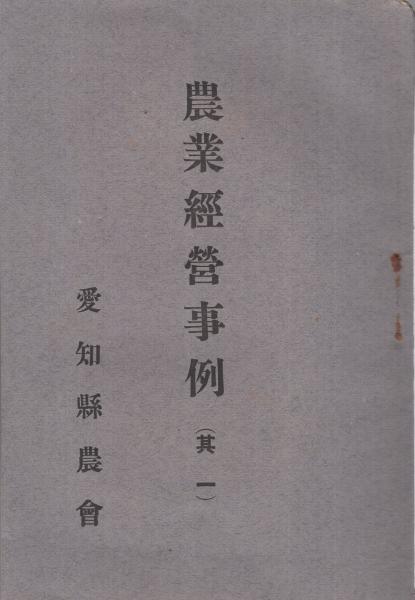 農業經營事例（其一）
愛知縣農會